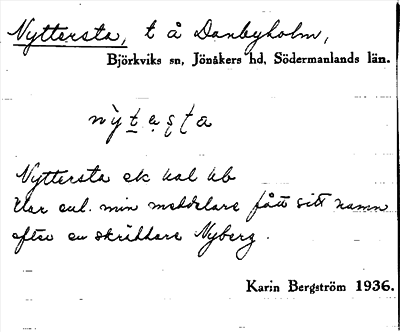 Nyttersta, t å Danbyholm,
Björkviks sn, Jönåkers hd, Södermanlands län.
Nyttersta ek kal kb
Har enl. min meddelare fått sitt namn
efter en skräddare Nyberg.
Karin Bergström 1936.